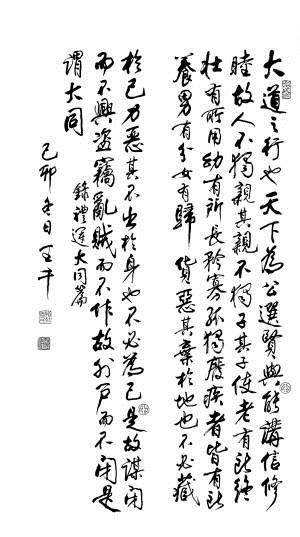 大道之行也天下為公選賢與能講信修
睦故人不獨親其親不獨子其子使老有所終
壯有所用幼有所長矜寡孤獨廢疾者皆有所
養男有分女有歸貨惡其棄於地也不必藏
於己力惡其不出於身也不必為己是故謀閉
而不興盜竊亂賊而不作故外戶而不閉是
謂大同
錄禮運大同篇
己卯冬日